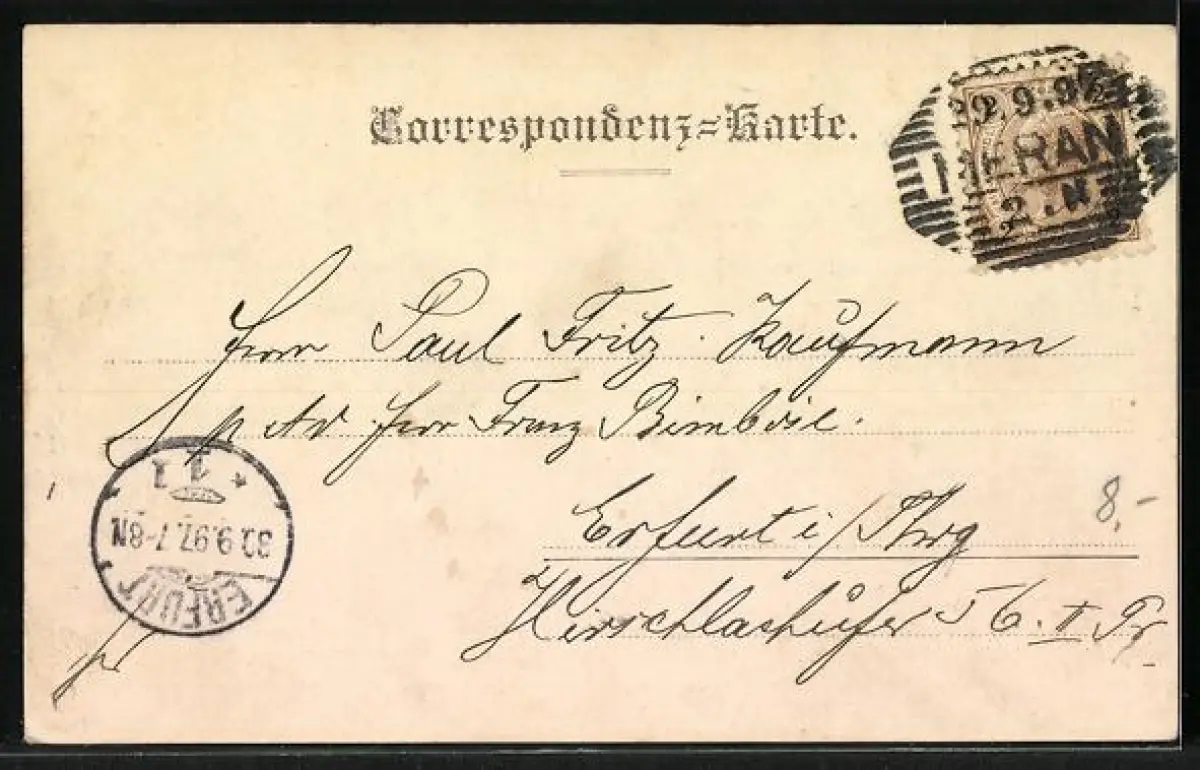 Correspondenz=Karte.
29.9.97
MERAN
2.N
Herrn Paul Fritz. Kaufmann
p Ad Herr Franz
Erfurt i/Thrg
Hirschlachufer 56. II Tr
8.-
ERFURT
30.9.97.7-8N
* 1 1